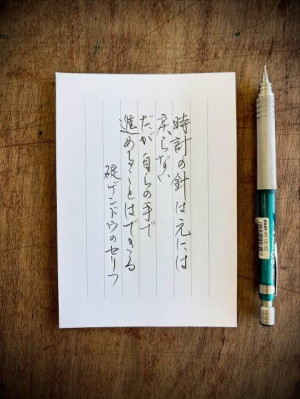 時計の針は元には
戻らない
だが自らの手で
進めることはできる
碇ゲンドウのセリフ